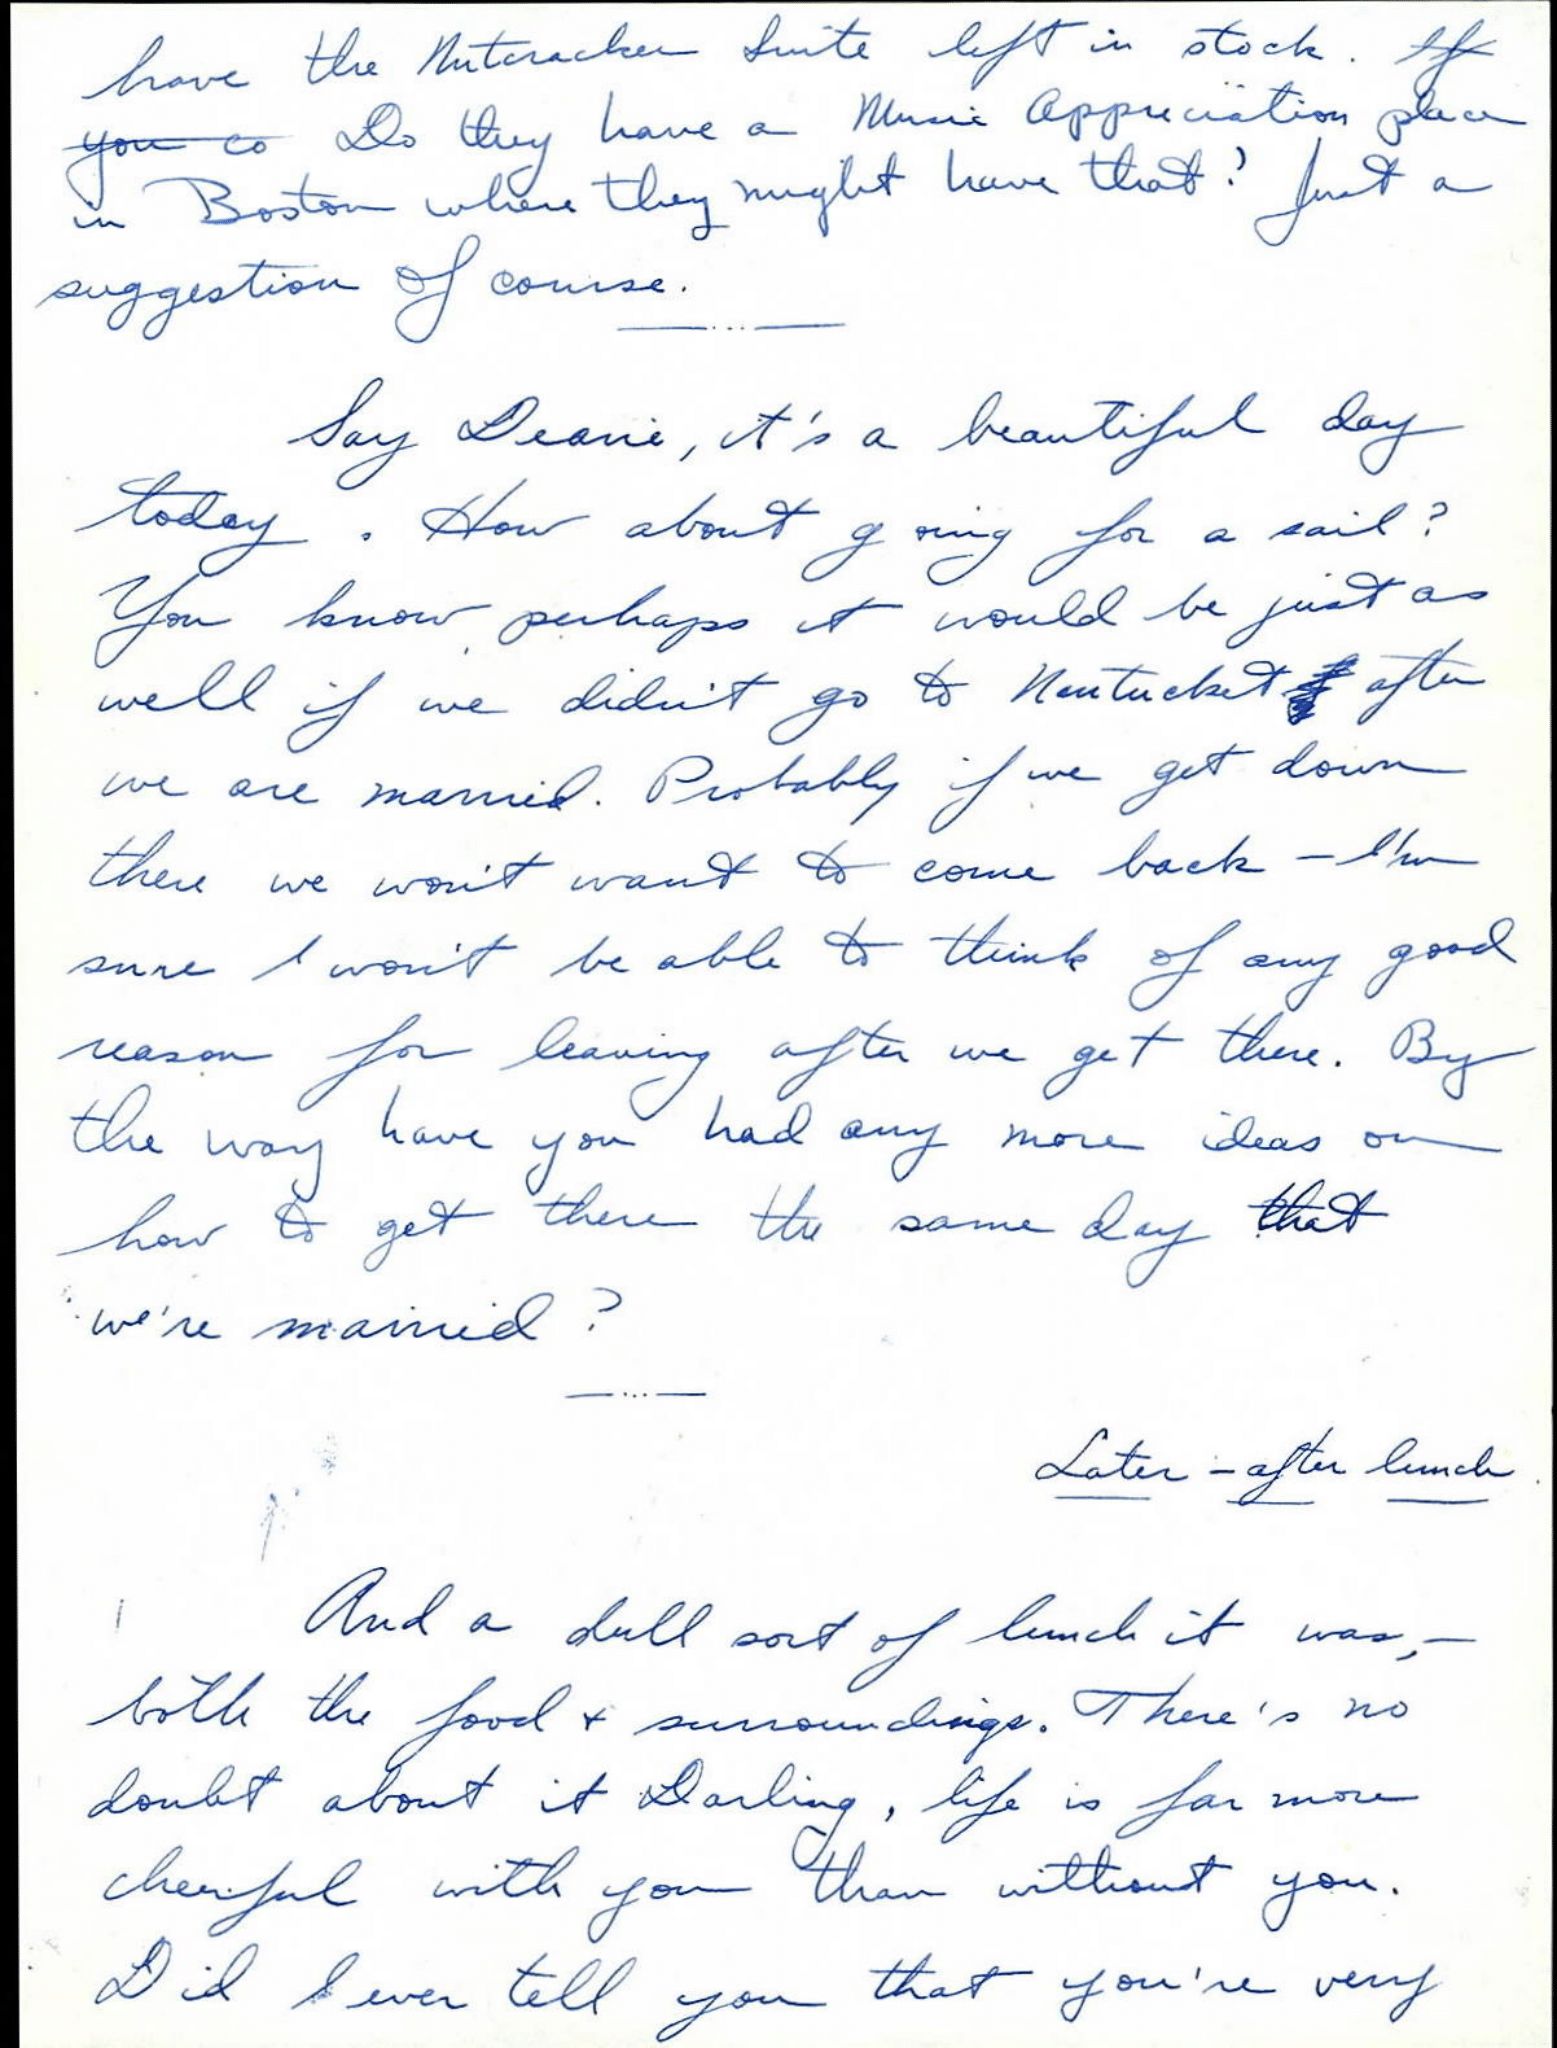 have the Nutcracker Suite left in stock. If
you co Do they have a Music Appreciation place
in Boston where they might have that? Just a
suggestion of course.
Say Dearie, it's a beautiful day
today. How about going for a sail?
You know, perhaps it would be just as
well if we didn't go to Nantucket after
we are married. Probably if we get down
there we won't want to come back - I'm
sure I won't be able to think of any good
reason for leaving after we get there. By
the way have you had any more ideas on
how to get there the same day that
we're married?
Later - after lunch.
And a dull sort of lunch it was, -
both the food + surroundings. There's no
doubt about it Darling, life is far more
cheerful with you than without you.
Did I ever tell you that you're very